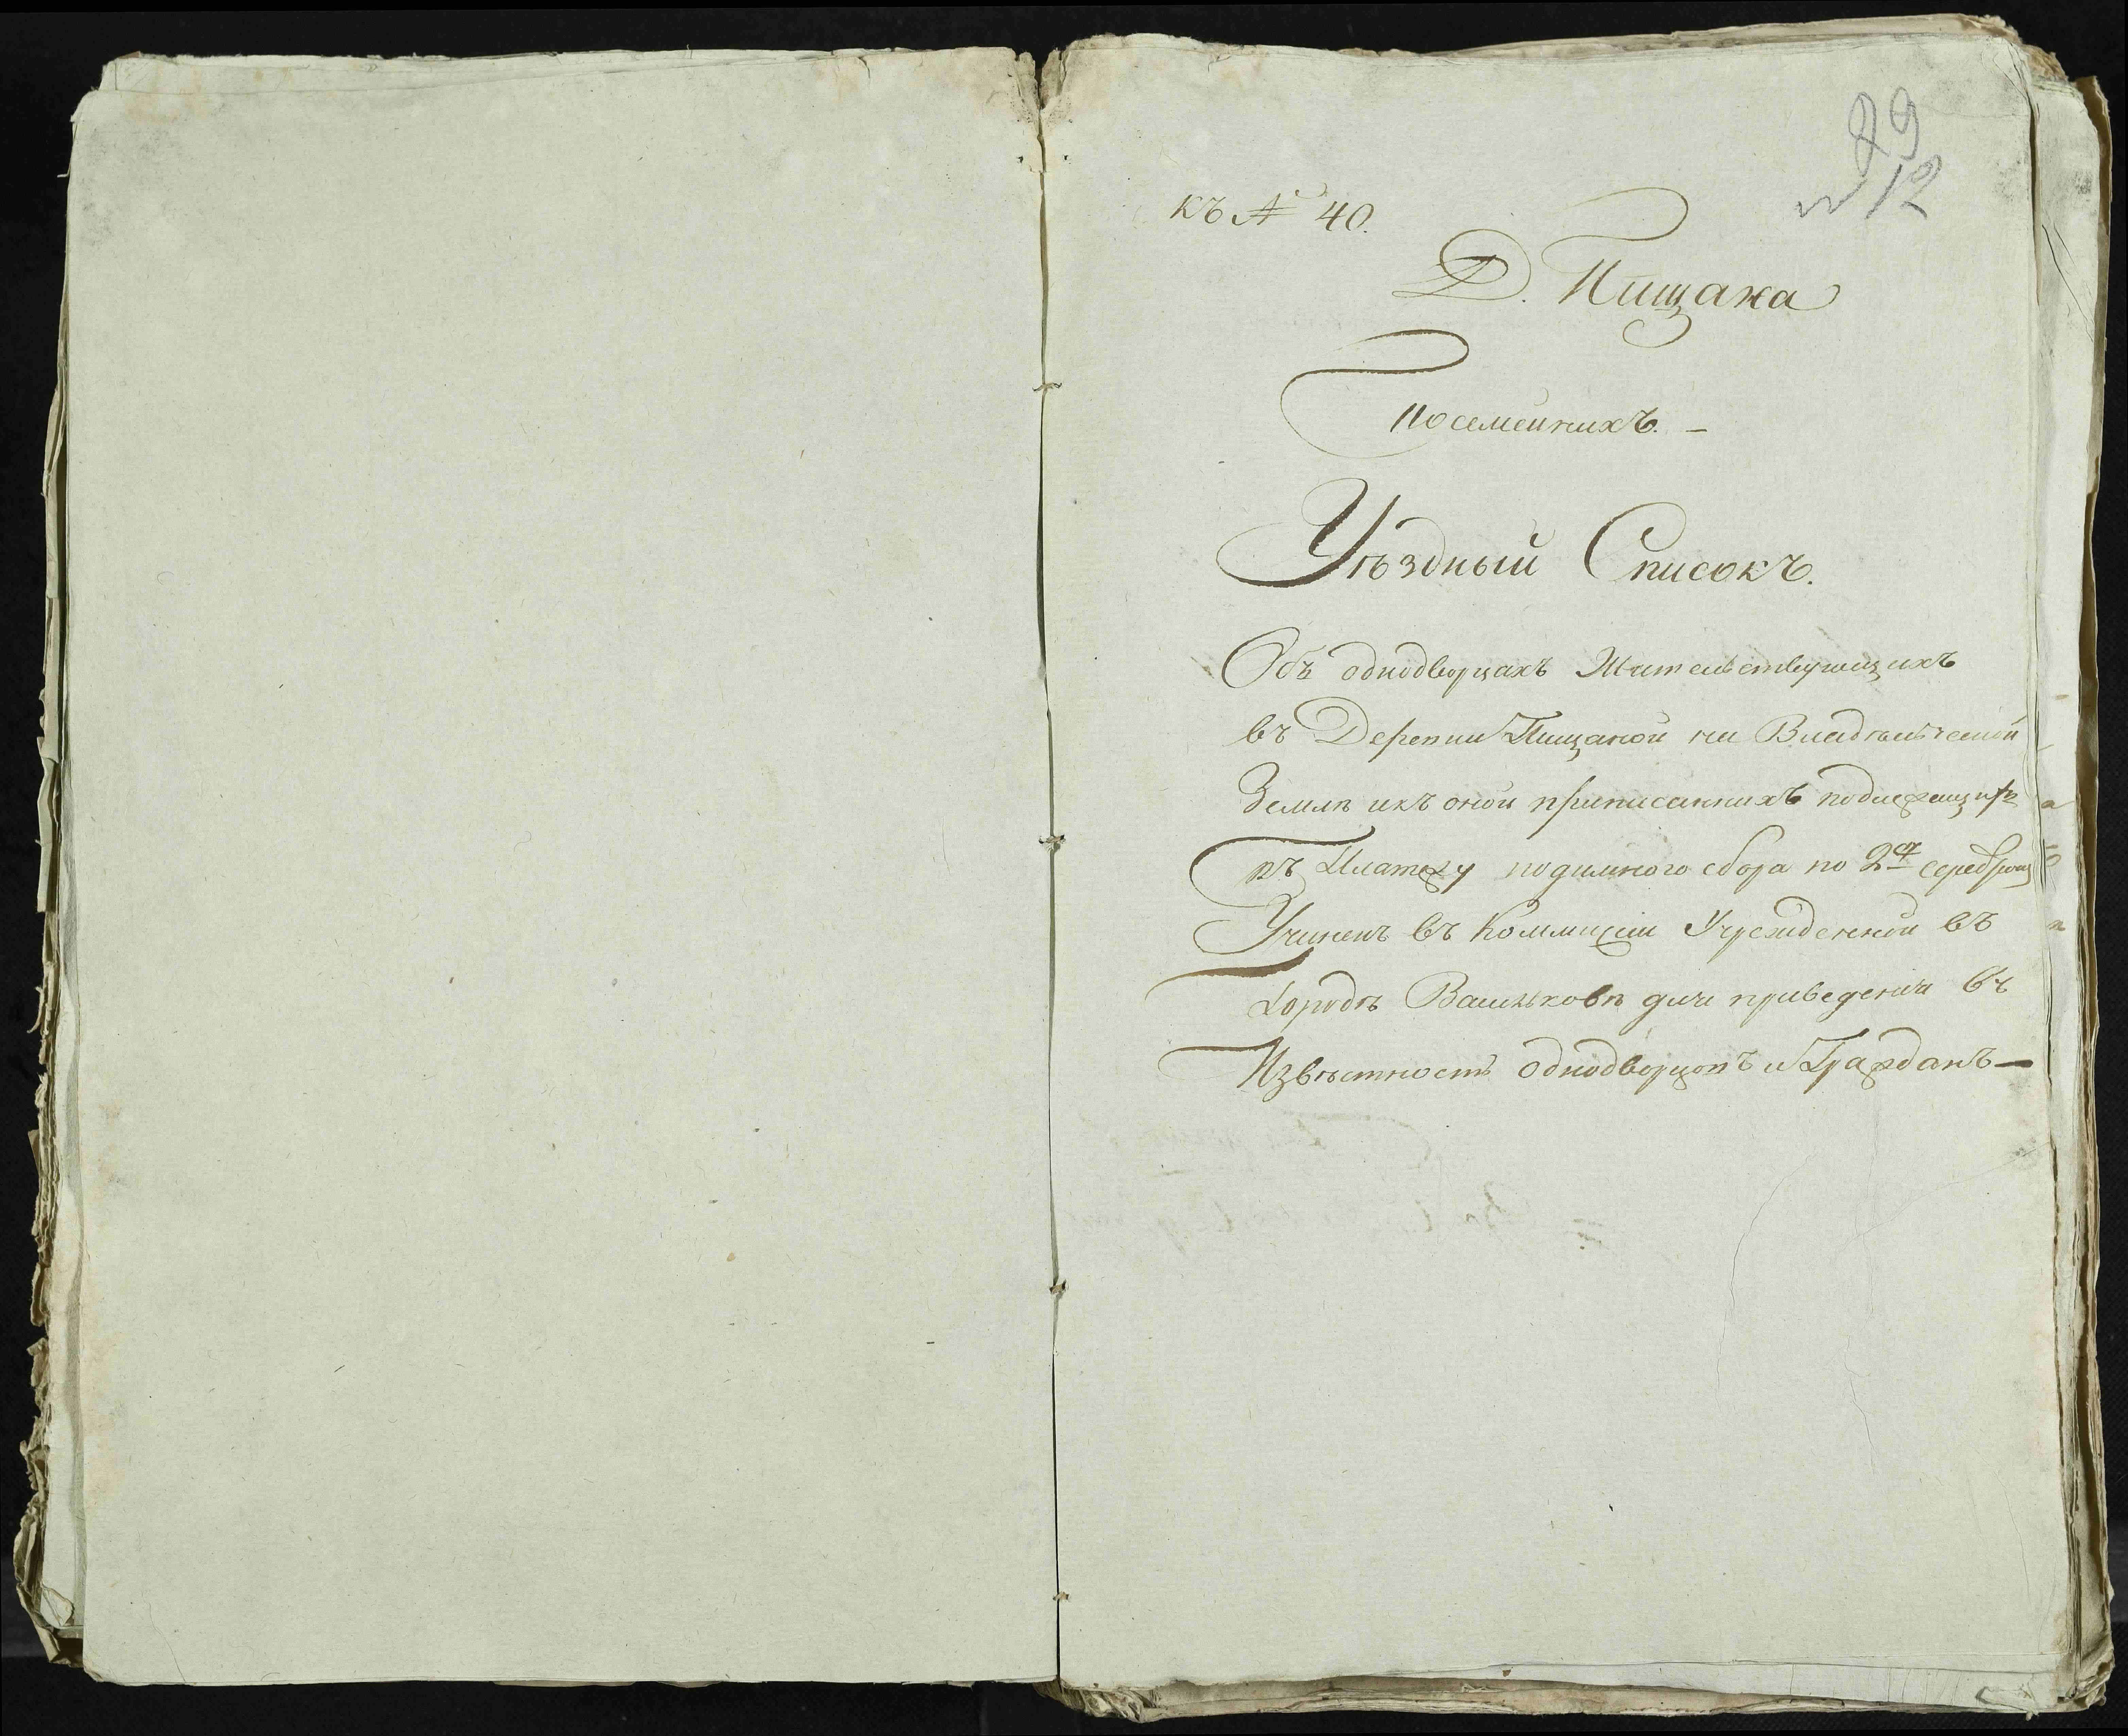 29
12
къ № 40.
Д. Пищана
Посемейнихъ. —
Уѣздный Списокъ.
Объ однодворцахъ Жительствующихъ
въ Деревни Пищаной на Владѣльческой
Землѣ икъ оной приписаннихъ подлежащихъ
къ Платежу подимного сбора по 2 серебромъ
Учиненъ въ Коммисіи Учрежденной въ
Городѣ Васильковѣ для приведенія въ
Извѣстность однодворцовъ и Гражданъ —